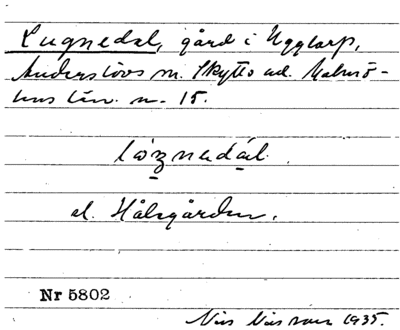 Lugnedal, gård i Ugglarp,
Anderslövs sn. Skytts hd. Malmö-
hus län. n. 15.
el. Hålsgården.
Nr 5802
Nils Nilsson 1935.